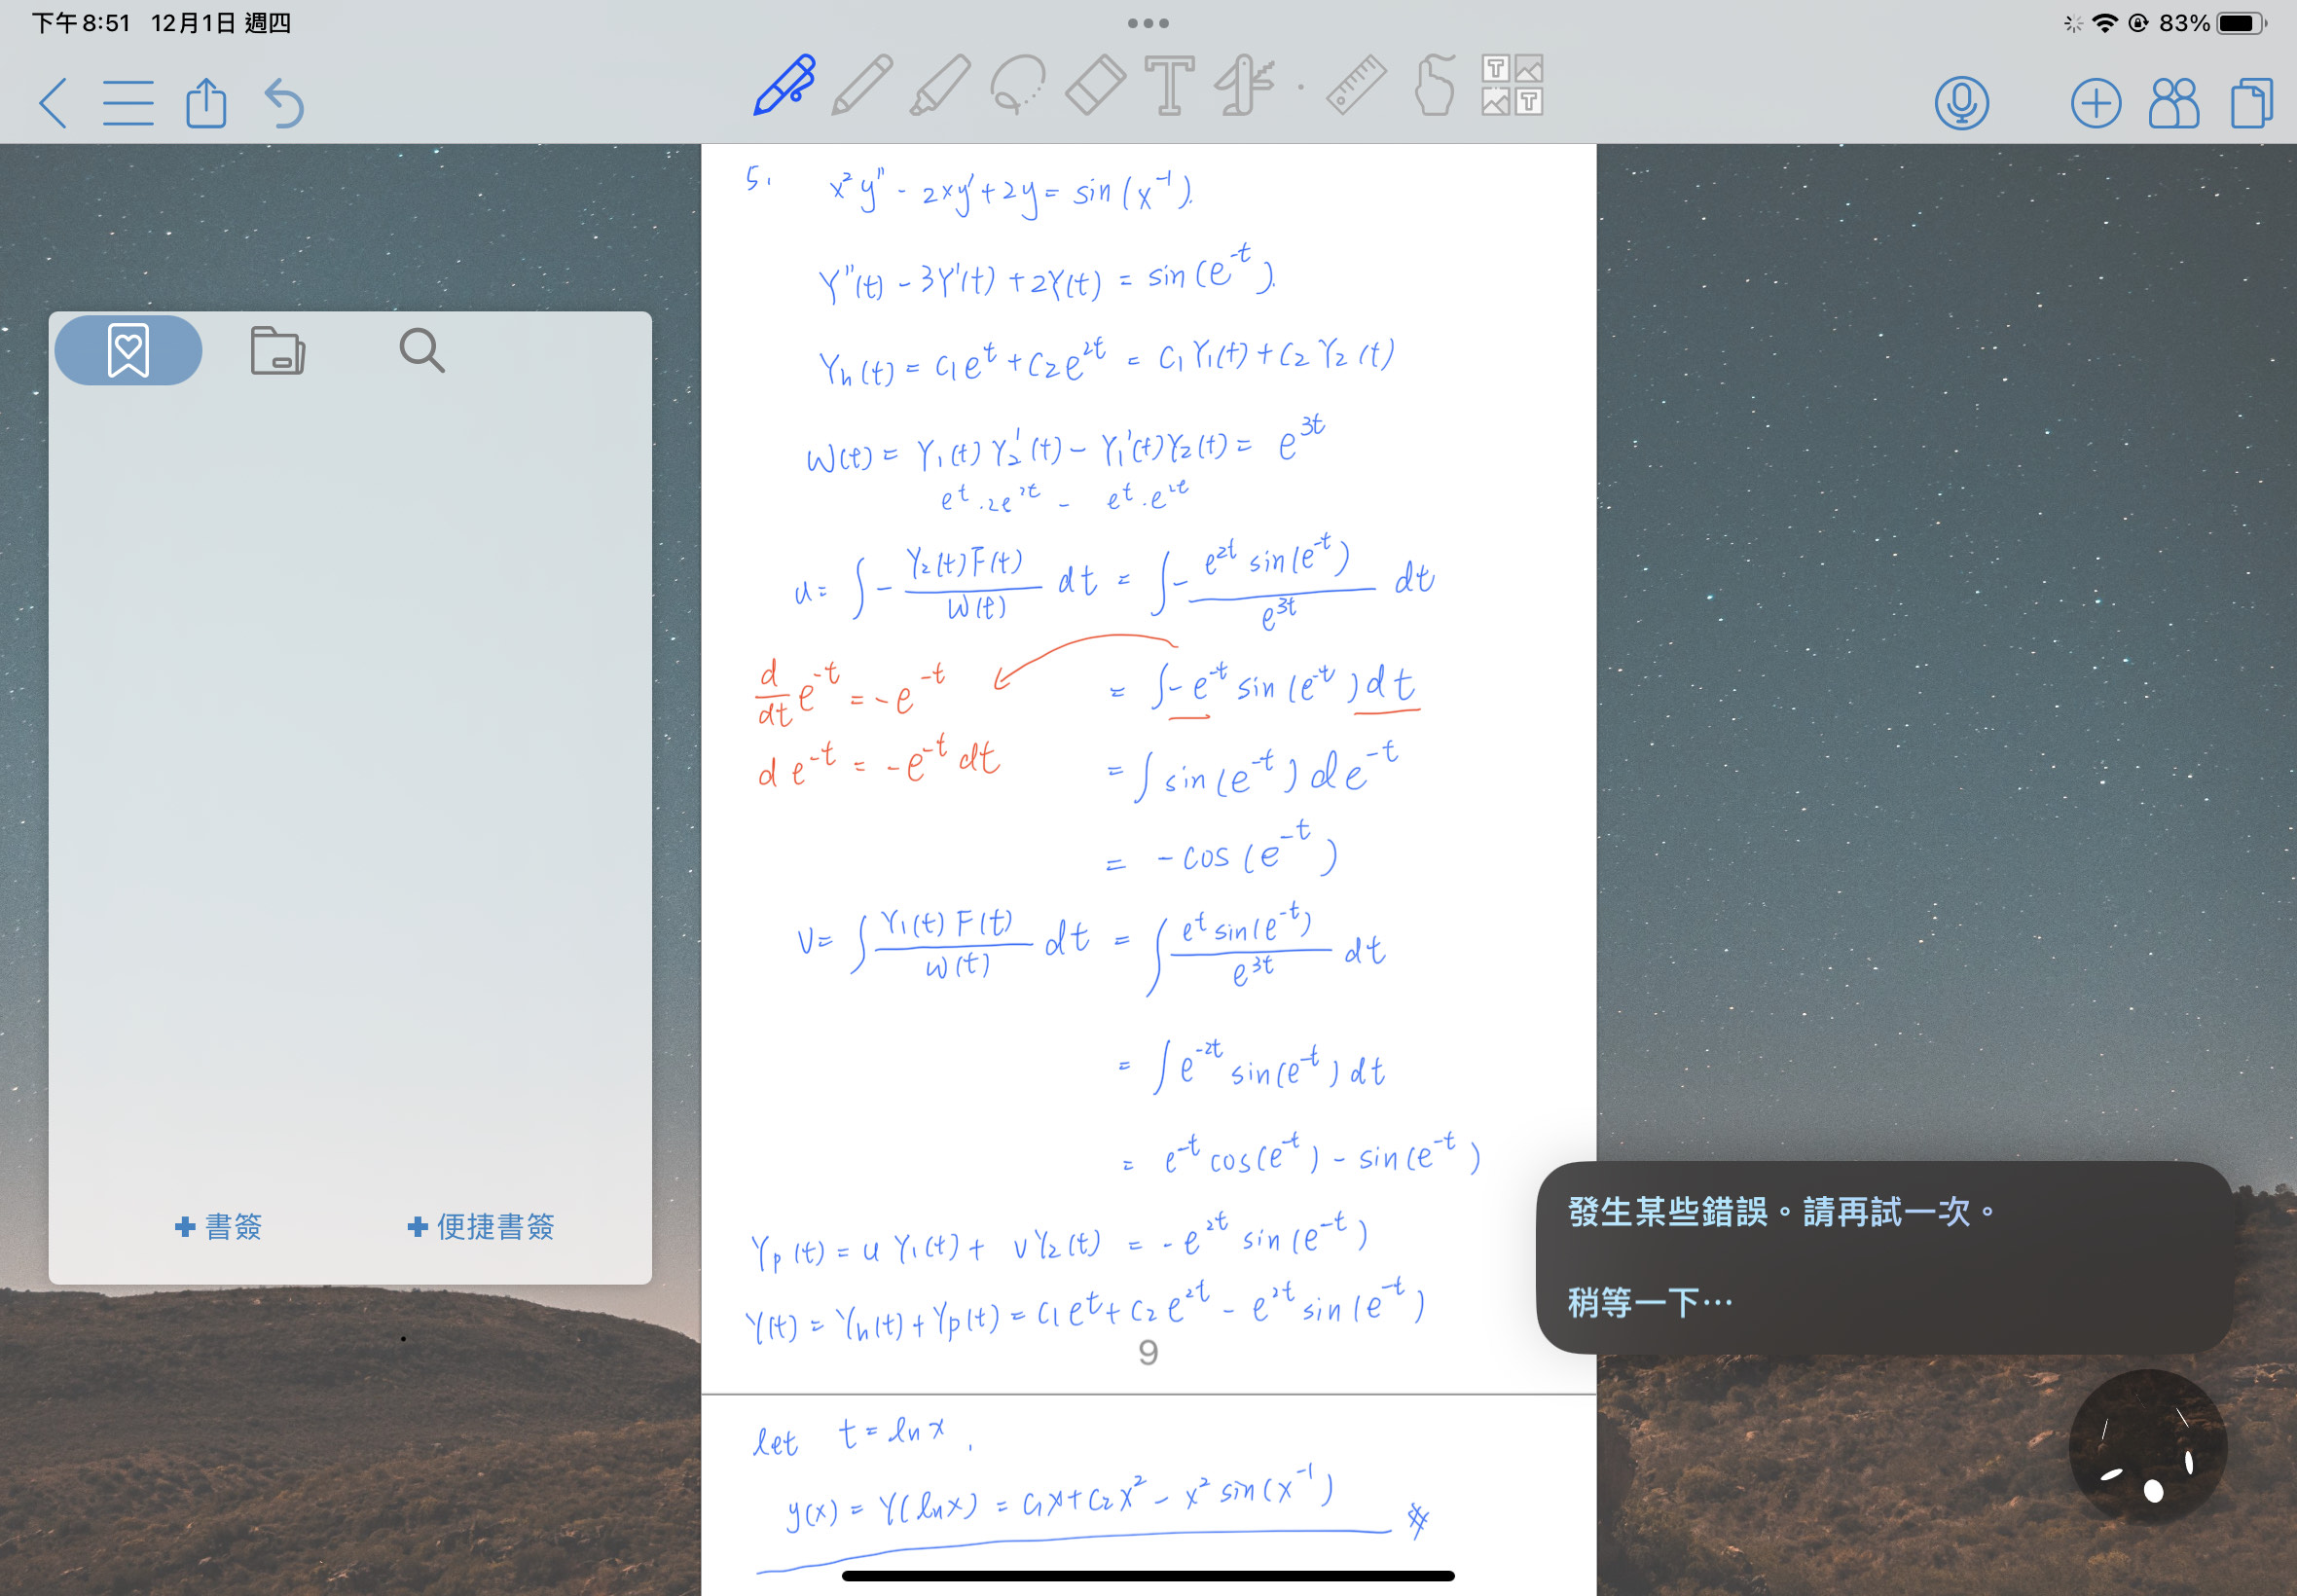 下午8:51 12月1日 週四
83%
5. x²y" - 2xy' + 2y = sin(x⁻¹).
Y"(t) - 3Y'(t) + 2Y(t) = sin(e⁻ᵗ).
Yₕ(t) = c₁eᵗ + c₂e²ᵗ = c₁Y₁(t) + c₂Y₂(t)
W(t) = Y₁(t)Y₂'(t) - Y₁'(t)Y₂(t) = e³ᵗ
eᵗ·2e²ᵗ - eᵗ·e²ᵗ
u = ∫ - Y₂(t)F(t) / W(t) dt = ∫ - e²ᵗ sin(e⁻ᵗ) / e³ᵗ dt
d/dt e⁻ᵗ = -e⁻ᵗ
= ∫ -e⁻ᵗ sin(e⁻ᵗ) dt
de⁻ᵗ = -e⁻ᵗ dt
= ∫ sin(e⁻ᵗ) de⁻ᵗ
= -cos(e⁻ᵗ)
v = ∫ Y₁(t)F(t) / W(t) dt = ∫ eᵗ sin(e⁻ᵗ) / e³ᵗ dt
= ∫ e⁻²ᵗ sin(e⁻ᵗ) dt
= e⁻ᵗ cos(e⁻ᵗ) - sin(e⁻ᵗ)
Yₚ(t) = uY₁(t) + vY₂(t) = -e²ᵗ sin(e⁻ᵗ)
Y(t) = Yₕ(t) + Yₚ(t) = c₁eᵗ + c₂e²ᵗ - e²ᵗ sin(e⁻ᵗ)
9
let t = ln x,
y(x) = Y(ln x) = c₁x + c₂x² - x² sin(x⁻¹) #
書簽
便捷書簽
發生某些錯誤。請再試一次。
稍等一下⋯